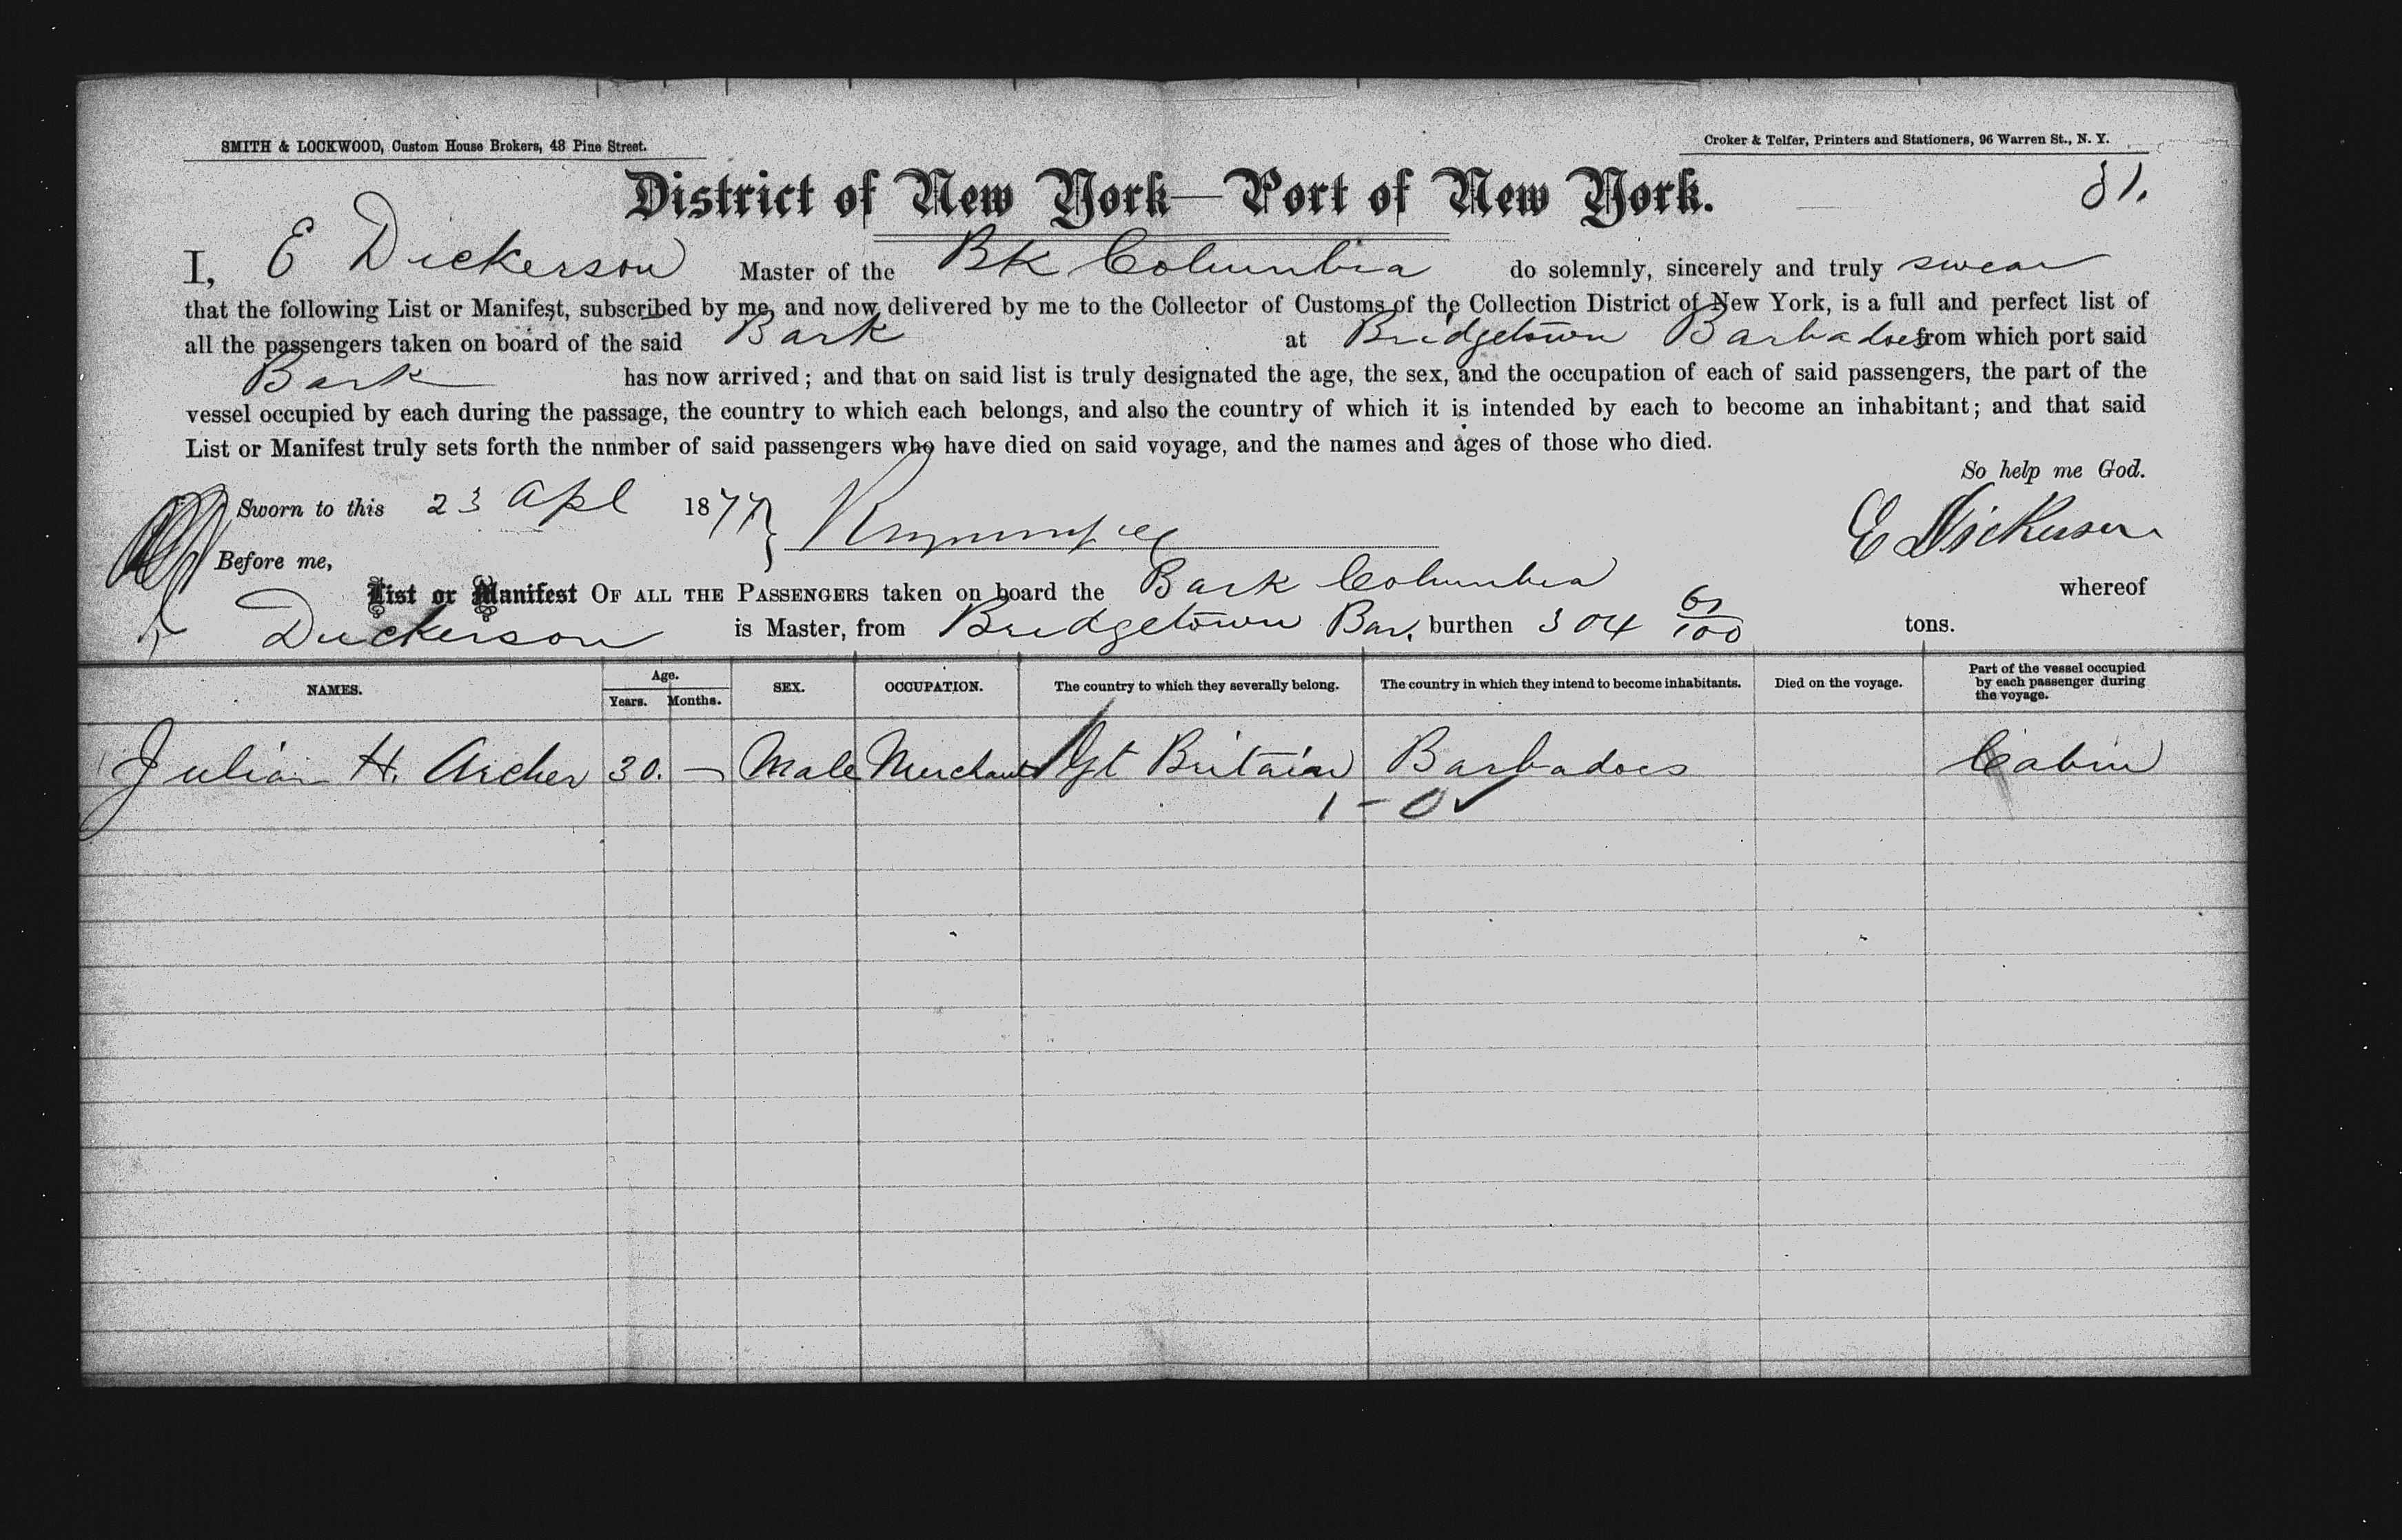 SMITH & LOCKWOOD, Custom House Brokers, 48 Pine Street.
Croker & Telfer, Printers and Stationers, 96 Warren St., N. Y.
District of New York—Port of New York.
81.
I, E Dickerson Master of the Bk Columbia do solemnly, sincerely and truly swear
that the following List or Manifest, subscribed by me, and now delivered by me to the Collector of Customs of the Collection District of New York, is a full and perfect list of
all the passengers taken on board of the said Bark at Bridgetown Barbadoes from which port said
Bark has now arrived; and that on said list is truly designated the age, the sex, and the occupation of each of said passengers, the part of the
vessel occupied by each during the passage, the country to which each belongs, and also the country of which it is intended by each to become an inhabitant; and that said
List or Manifest truly sets forth the number of said passengers who have died on said voyage, and the names and ages of those who died.
So help me God.
Sworn to this 23 Apl 1877
E Dickerson
Before me,
List or Manifest OF ALL THE PASSENGERS taken on board the Bark Columbia whereof
Dickerson is Master, from Bridgetown Bar. burthen 304 61/100 tons.
NAMES. Age. Years. Months. SEX. OCCUPATION. The country to which they severally belong. The country in which they intend to become inhabitants. Died on the voyage. Part of the vessel occupied by each passenger during the voyage.
Julian H. Archer 30. — Male Merchant Gt Britain Barbadoes Cabin
1 - 0 ✓